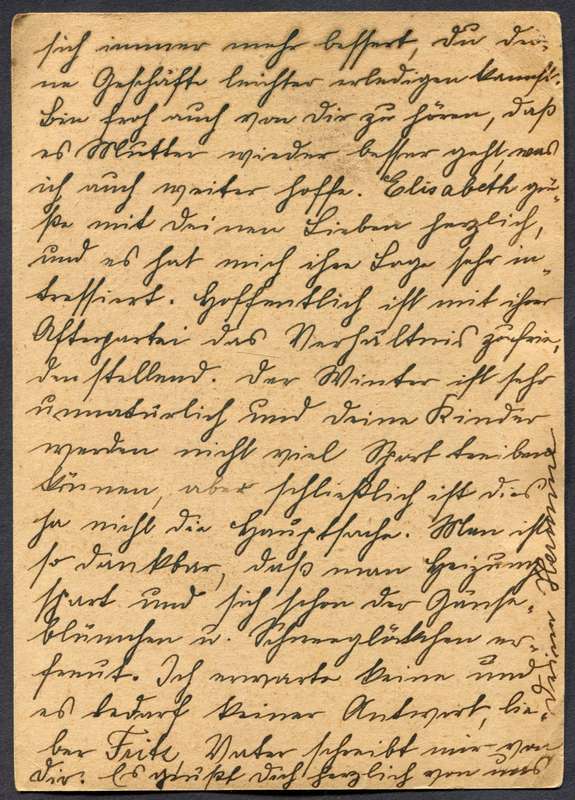 sich immer mehr bessert, du dei-
ne Geschäfte leichter erledigen kannst.
Bin froh auch von dir zu hören, daß
es Mutter wieder besser geht was
ich auch weiter hoffe. Elisabeth grü-
ße mit deinen Lieben herzlich,
und es hat mich ihre Lage sehr in-
tressiert. Hoffentlich ist mit ihrer
Afterpartei das Verhältnis zufrie-
denstellend. Der Winter ist sehr
unnatürlich und deine Kinder
werden nicht viel Sport treiben
können, aber schließlich ist dies
ja nicht die Hauptsache. Man ist
so dankbar, daß man Heizung
spart und sich schon der Gänse-
blümchen u. Schneeglöckchen er-
freut. Ich erwarte keine und
es bedarf keiner Antwort, lie-
ber Fritz, Vater schreibt mir von
dir. Es grüßt dich herzlich von uns
deine Hermine